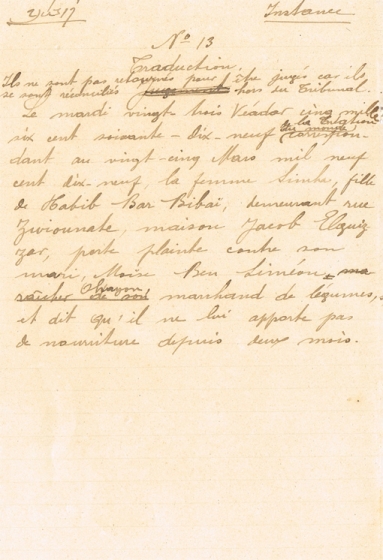 Instance
N° 13
Traduction.
Ils ne sont pas retournés pour être jugés car ils
se sont réconciliés hors du Tribunal.
Le mardi vingt-trois Véadar cinq mille
six cent soixante-Dix-neuf de la Création
du monde correspon-
dant au vingt-cinq Mars mil neuf
cent dix-neuf, la femme Simha, fille
de Habib Bar Bibaï, demeurant rue
Ziviounate, maison Jacob Elguiz
zar, porte plainte contre son
mari, Moïse Ben Siméon, ma
raîcher de son marchand de légumes,
et dit qu'il ne lui apporte pas
de nourriture depuis deux mois.